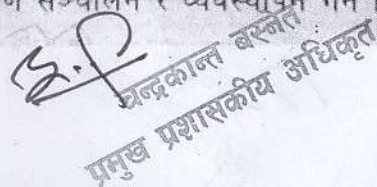 सञ्चालन र व्यवस्थापन गर्न
चन्द्रकान्त बस्नेत
प्रमुख प्रशासकीय अधिकृत